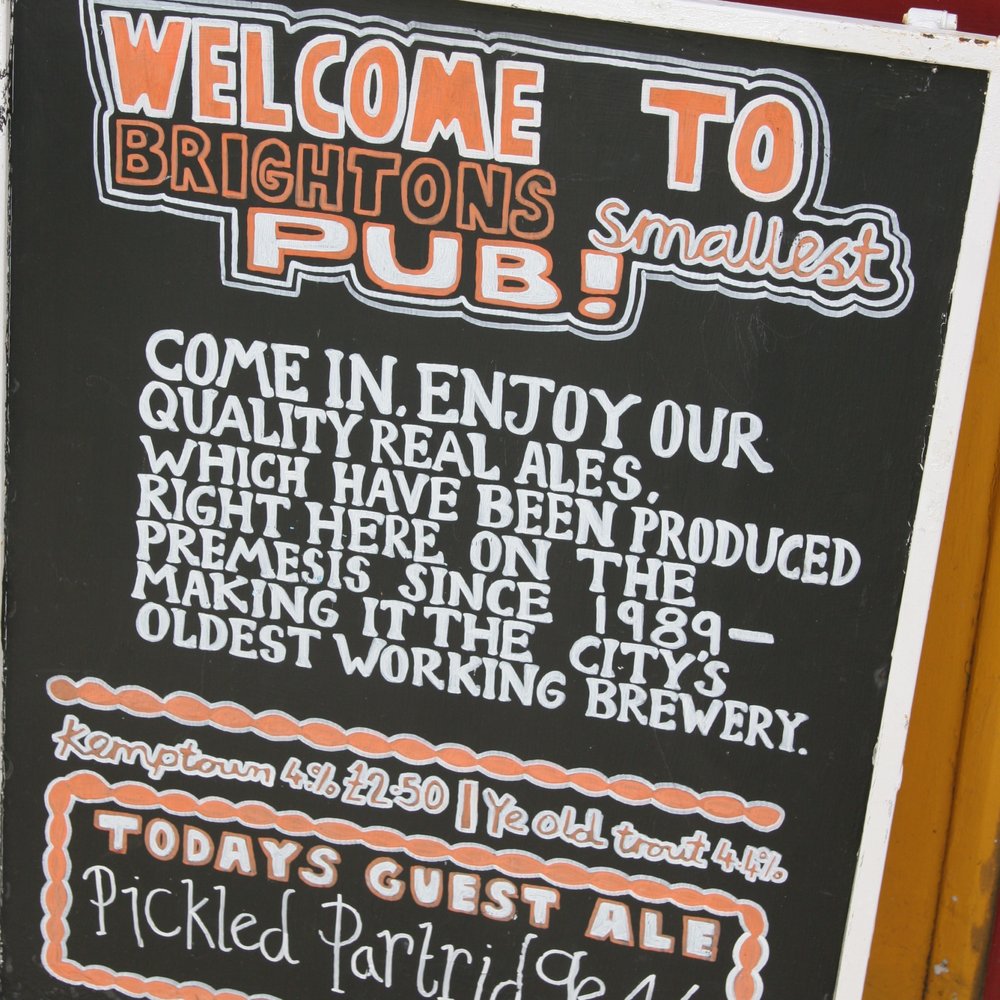 WELCOME TO
BRIGHTONS smallest
PUB!
COME IN. ENJOY OUR
QUALITY REAL ALES.
WHICH HAVE BEEN PRODUCED
RIGHT HERE ON THE
PREMESIS SINCE 1989—
MAKING IT THE CITY'S
OLDEST WORKING BREWERY.
Kemptown 4% £2-50 | Ye old trout 4.4%
TODAYS GUEST ALE
Pickled Partridge